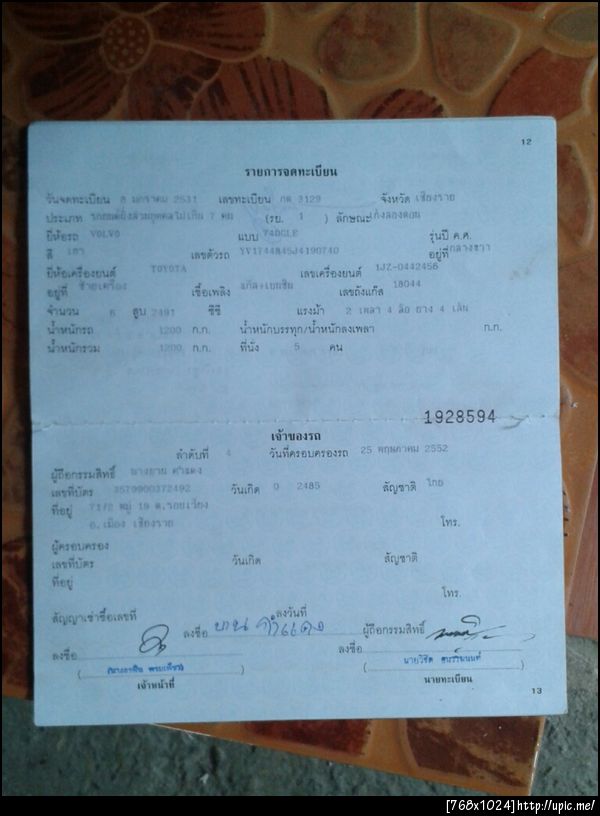 12
รายการจดทะเบียน
วันจดทะเบียน 8 มกราคม 2531 เลขทะเบียน 3129 จังหวัด เชียงราย
ประเภท รถยนต์นั่งส่วนบุคคลไม่เกิน 7 คน (รย. 1 ) ลักษณะ เก๋งสองตอน
ยี่ห้อรถ VOLVO แบบ 740GLE รุ่นปี ค.ศ.
สี เทา เลขตัวรถ YV1744845J4190740 อยู่ที่ กลางขวา
ยี่ห้อเครื่องยนต์ TOYOTA เลขเครื่องยนต์ 1JZ-0442456
อยู่ที่ ซ้ายเครื่อง เชื้อเพลิง แก๊ส+เบนซิน เลขถังแก๊ส 18044
จำนวน 6 สูบ 2491 ซีซี แรงม้า 2 เพลา 4 ล้อ ยาง 4 เส้น
น้ำหนักรถ 1200 ก.ก. น้ำหนักบรรทุก/น้ำหนักลงเพลา ก.ก.
น้ำหนักรวม 1200 ก.ก. ที่นั่ง 5 คน
1928594
เจ้าของรถ
ลำดับที่ 4 วันที่ครอบครองรถ 25 พฤษภาคม 2552
ผู้ถือกรรมสิทธิ์
เลขที่บัตร 3570900372492 วันเกิด 0 2485 สัญชาติ ไทย
ที่อยู่ 71/2 หมู่ 19 ต.รอบเวียง
อ.เมือง เชียงราย โทร.
ผู้ครอบครอง
เลขที่บัตร วันเกิด สัญชาติ
ที่อยู่
โทร.
สัญญาเช่าซื้อเลขที่ ลงวันที่
ลงชื่อ ผู้ถือกรรมสิทธิ์
ลงชื่อ ลงชื่อ
( ) ( นายวิชิต )
เจ้าหน้าที่ นายทะเบียน
13
[768x1024]http://upic.me/